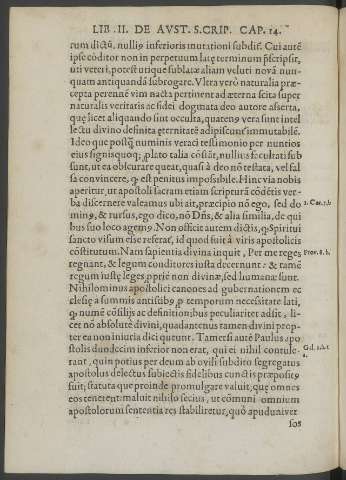 LIB .II. DE AVST. S.CRIP. CAP. 14.
rum dictũ, nulliꝰ inferioris mutationi subdit᷑. Cui autẽ
ipse cõditor non in perpetuum latę terminum p̃scripsit,
uti veteri, potest utique sublatæ aliam veluti novã nun-
quam antiquandã subrogare. Vltra verò naturalia præ-
cepta perenne vim nacta pertinent ad æterna scita super
naturalis veritatis ac fidei dogmata deo autore asserta,
quę licet aliquando sint occulta, quatenꝰ vera sunt intel
lectu divino definita ęternitatẽ adipiscunt᷑ immutabilẽ.
Ideo que postq̃ numinis veraci testimonio per nuntios
eius signisquoq; ꝓlato talia cõstãt, nullius facultati sub
sunt, ut ea obscurare queat, quasi à deo nõ testata, vel fal
sa convincere, ꝙ est penitus impossibile. Hinc via nobis
aperitur, ut apostoli sacram etiam scripturã cõdẽtis ver-
ba discernere valeamus ubi ait, præcipio nõ ego, sed do
minꝰ, & rursus, ego dico, nõ Dñs, & alia similia, de qui
bus suo loco agemꝰ. Non officit autem dictis, ꝙ Spiritui
sancto visum esse referat᷑, id quod sui à viris apostolicis
cõstitutum. Nam sapientia divina inquit, Per me reges
regnant, & legum conditores iusta decernunt: & tamẽ
regum iustę leges ꝓprię non divinæ, sed humanæ sunt.
Nihilominus apostolici canones ad gubernationem ec
clesię a summis antistibꝰ, ꝓ temporum necessitate lati,
ꝙ numẽ cõsilijs ac definitionibus peculiariter adsit, li-
cet nõ absolutè divini, quadantenus tamen divini prop-
ter ea non iniuria dici queunt. Tametsi autẽ Paulus apo
stolis duodecim inferior non erat, qui ei nihil contule-
rant, quin potius per deum ab ovili subdito segregatus
apostolus delectus subiectis fidelibus cunctis præpositꝰ
suit; statuta que proinde promulgare valuit, quę omnes
eos tenerent: maluit nihilo secius, ut cõmuni omnium
apostolorum sententia res stabiliretur, quò apud univer
sos
1. Cor. 7. b
Prov. 8. b.